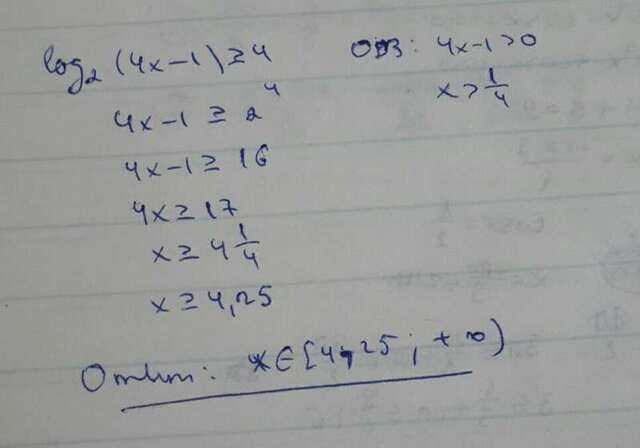 log₂ (4x-1) ≥ 4
ОДЗ: 4x-1>0
x > 1/4
4x-1 ≥ 2⁴
4x-1 ≥ 16
4x ≥ 17
x ≥ 4 1/4
x ≥ 4,25
Ответ: x∈[4,25; +∞)